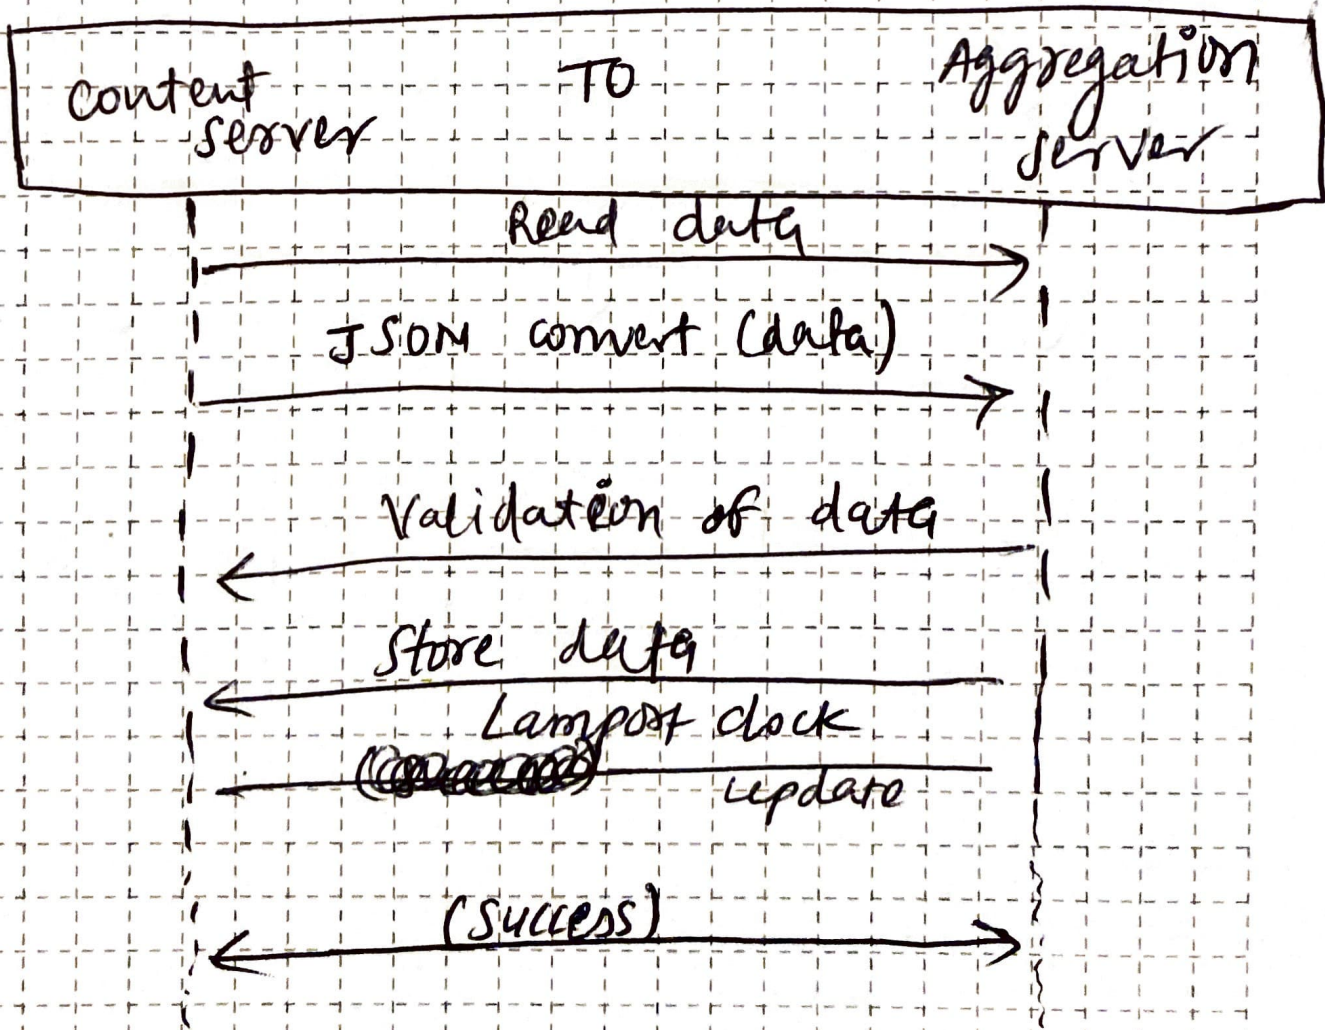 Content TO Aggregation
server server
Read data
JSON convert (data)
Validation of data
Store data
Lamport clock
update
(Success)